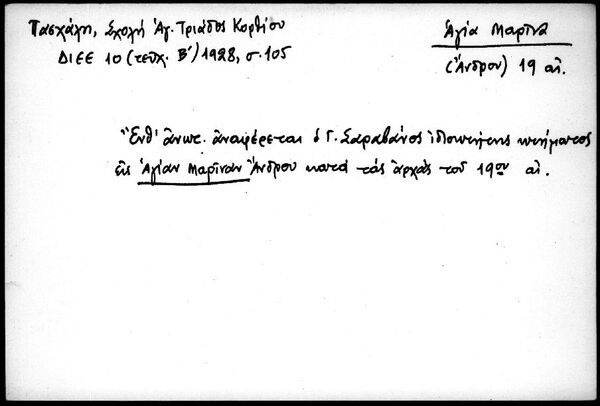 Πασχάλη, Σχολή Ἁγ. Τριάδος Κορθίου
ΔΙΕΕ 10 (τεῦχ. Β΄) 1928, σ. 105
Ἁγία Μαρῖνα
(Ἄνδρου) 19 αἰ.
Ἔνθ' ἄνωτ. ἀναφέρεται ὁ Γ. Σαραβάνος ἰδιοκτήτης κτήματος
εἰς Ἁγίαν Μαρῖναν Ἄνδρου κατά τάς ἀρχάς τοῦ 19ου αἰ.